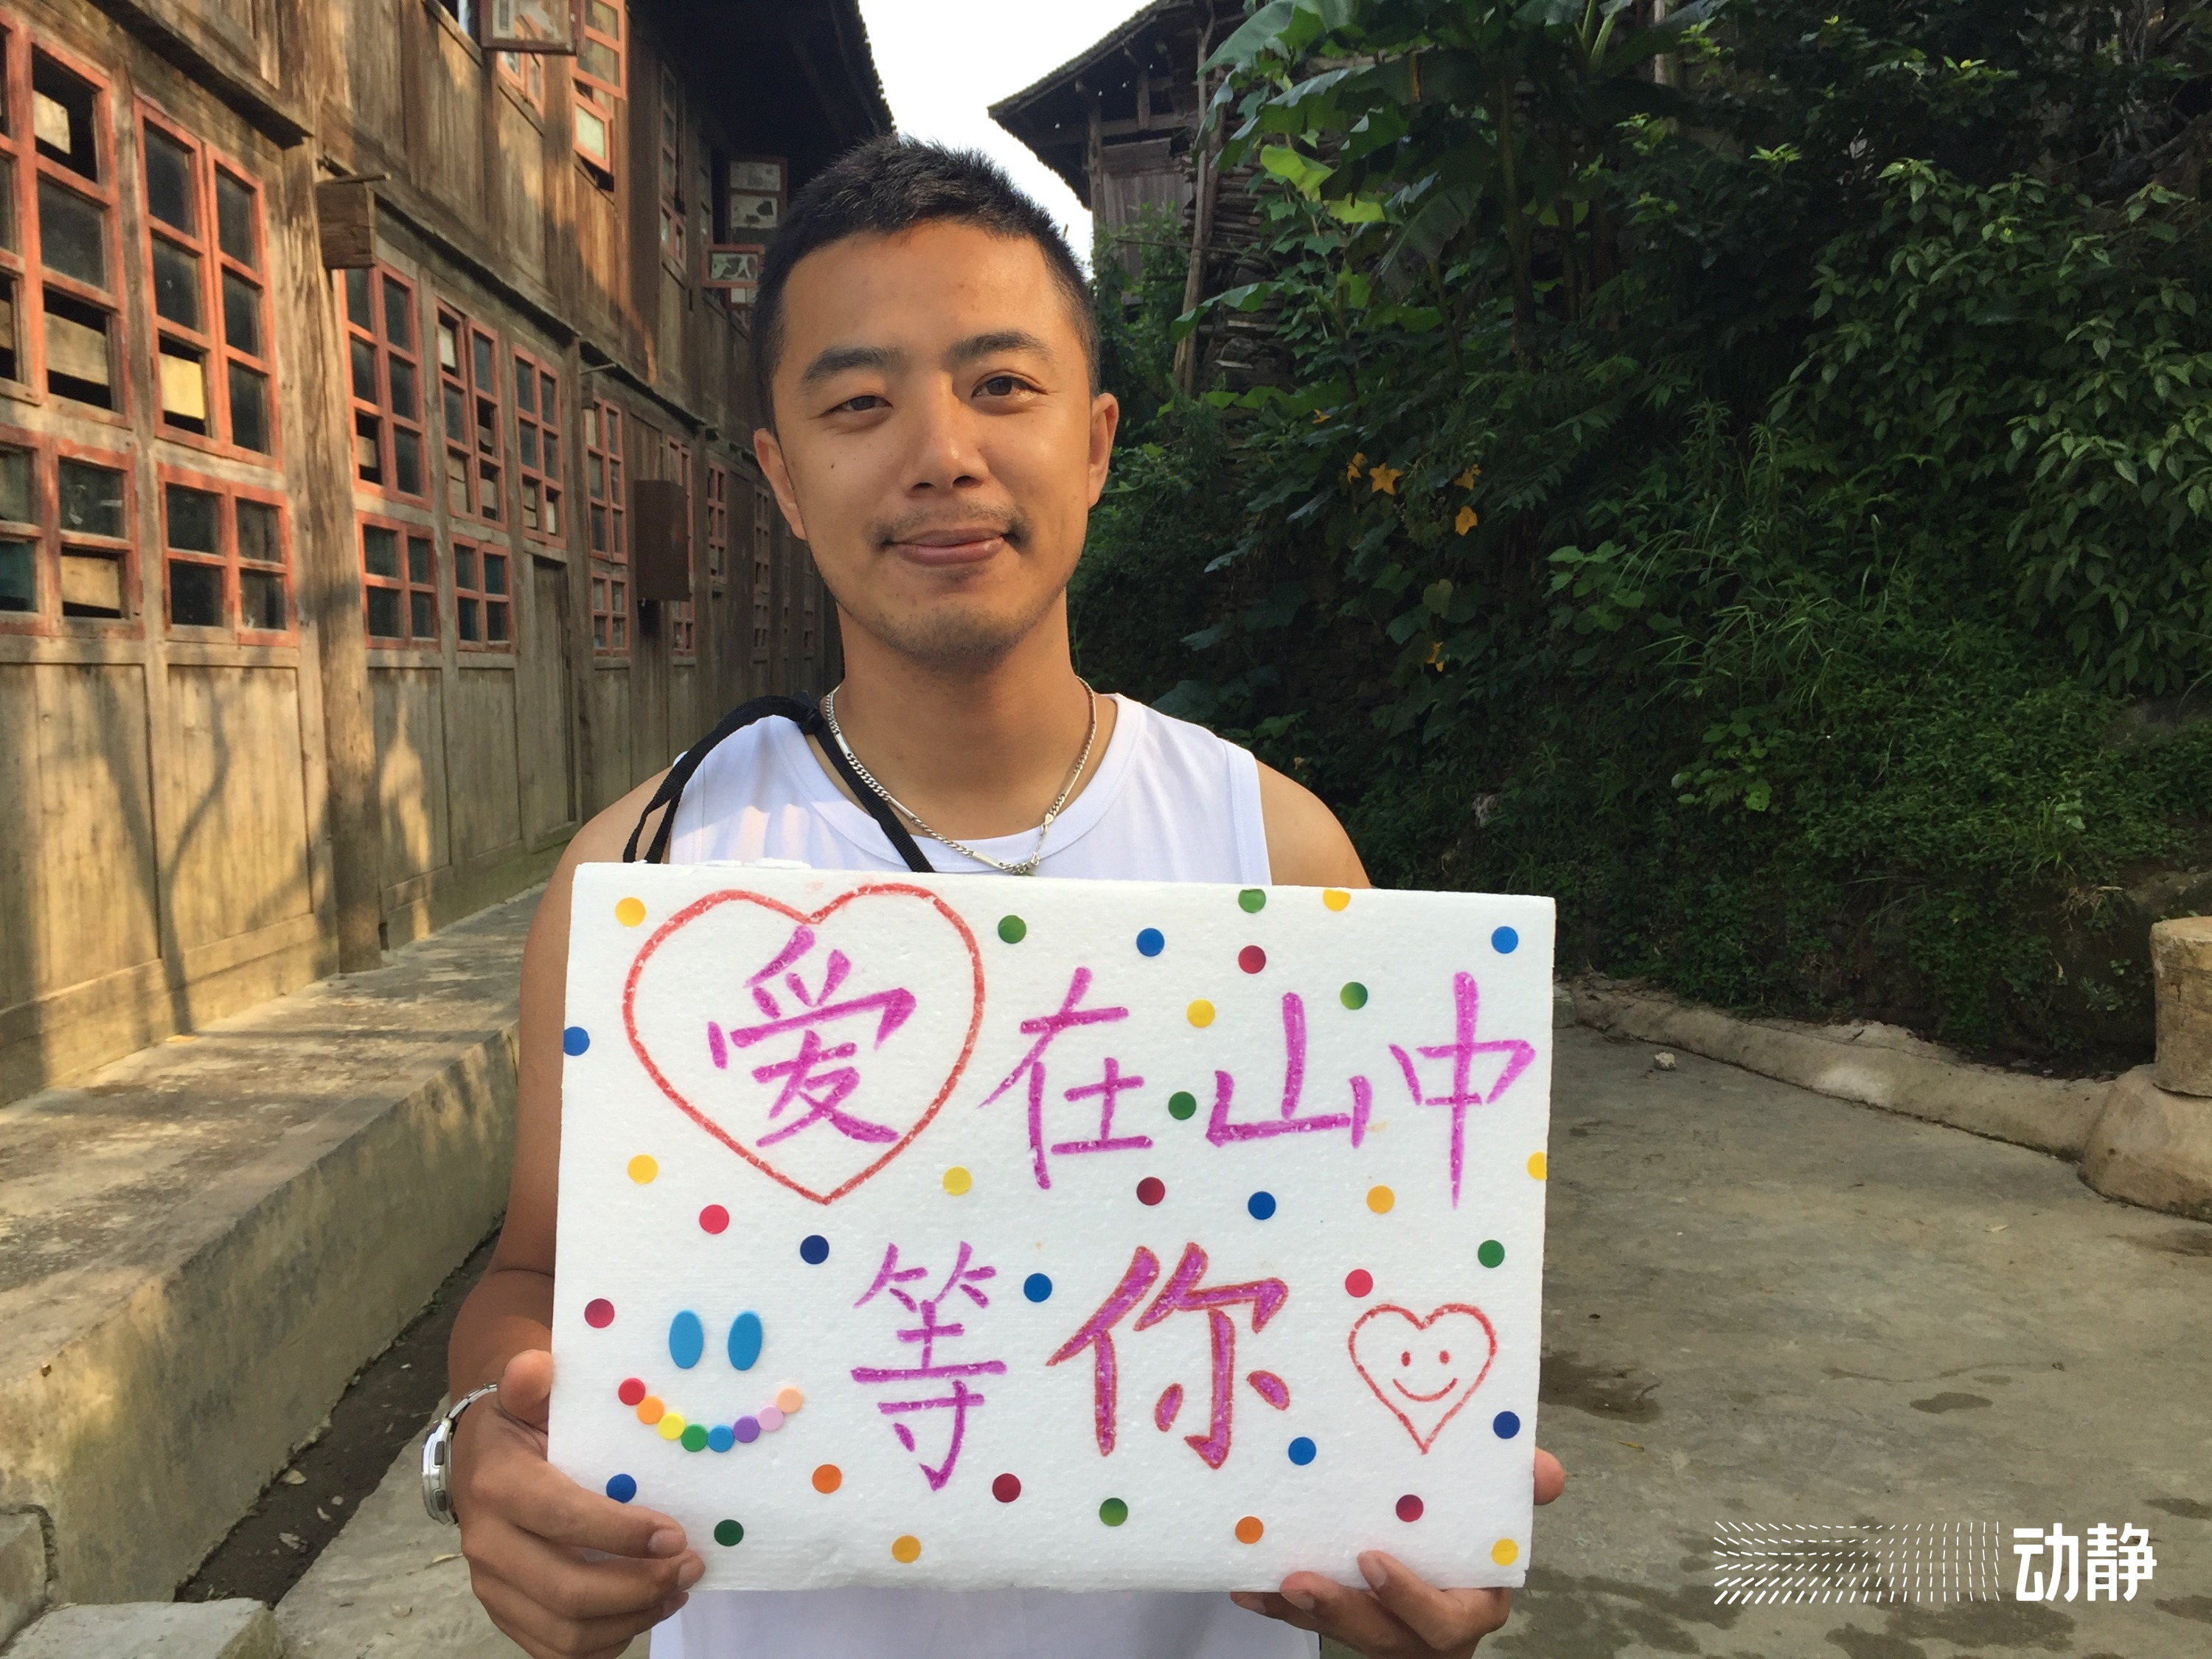 爱在山中
等你
动静